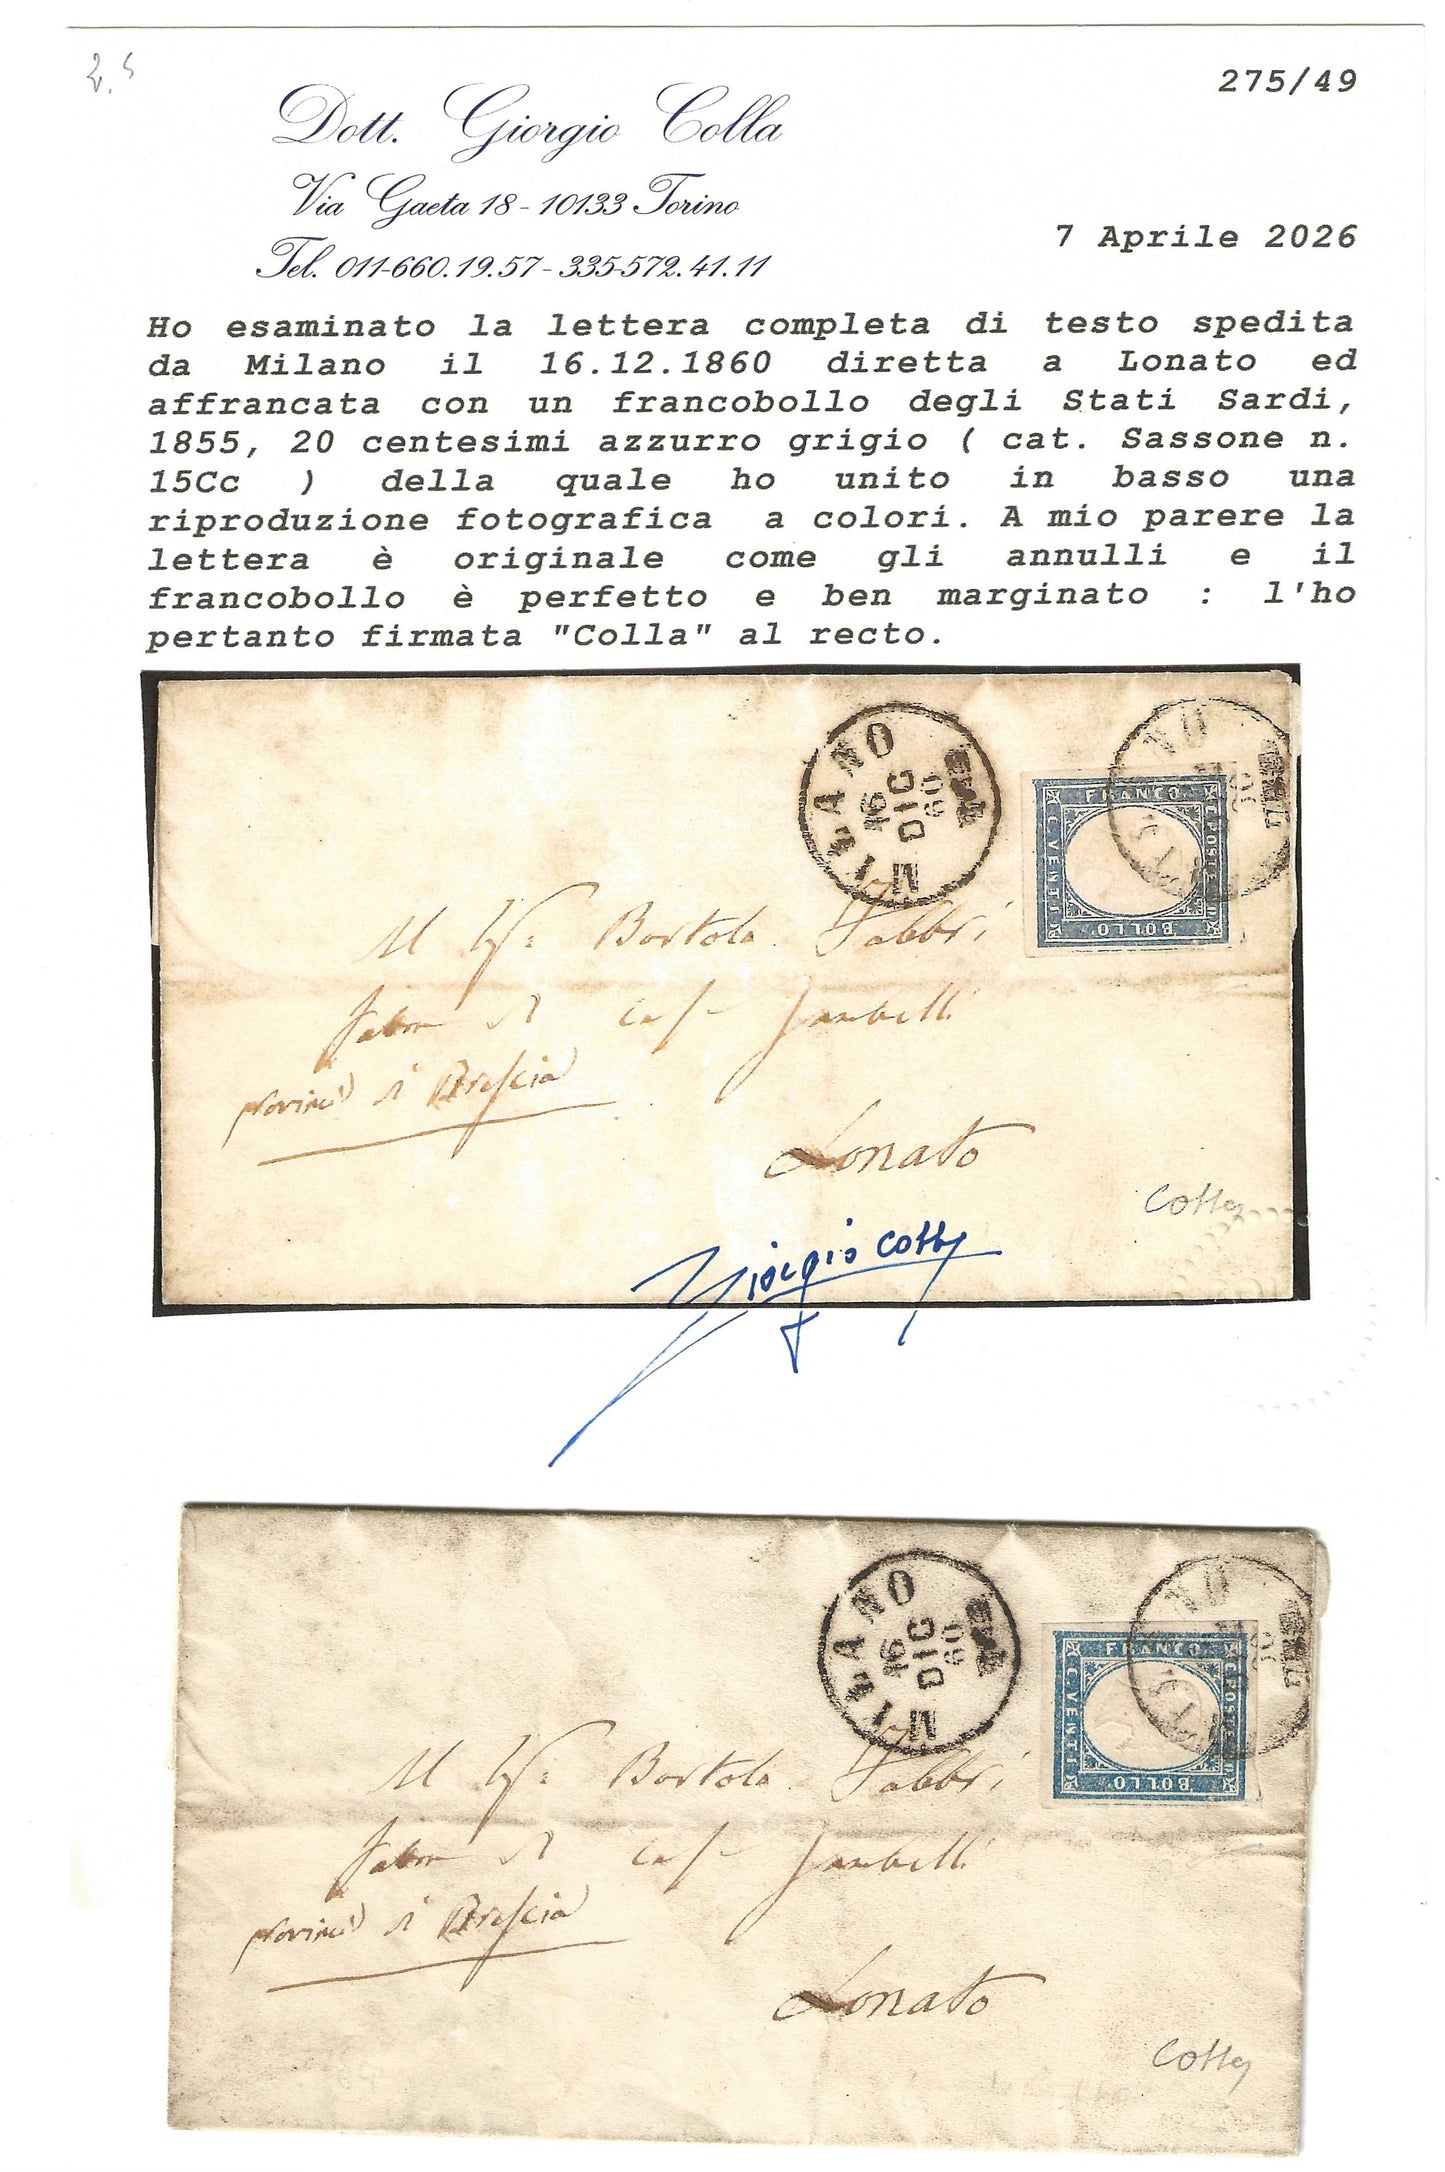 2.5
275/49
Dott. Giorgio Colla
Via Gaeta 18 - 10133 Torino
Tel. 011-660.19.57 - 335-572.41.11
7 Aprile 2026
Ho esaminato la lettera completa di testo spedita
da Milano il 16.12.1860 diretta a Lonato ed
affrancata con un francobollo degli Stati Sardi,
1855, 20 centesimi azzurro grigio ( cat. Sassone n.
15Cc ) della quale ho unito in basso una
riproduzione fotografica a colori. A mio parere la
lettera è originale come gli annulli e il
francobollo è perfetto e ben marginato : l'ho
pertanto firmata "Colla" al recto.
MILANO
16
DIC
60
FRANCO
C. VENTI
C POSTE
BOLLO
Bortolo Fabbri
Lonato
di Brescia
Colla
Giorgio Colla
MILANO
16
DIC
60
FRANCO
C. VENTI
C POSTE
BOLLO
Bortolo Fabbri
di Brescia
Lonato
Colla